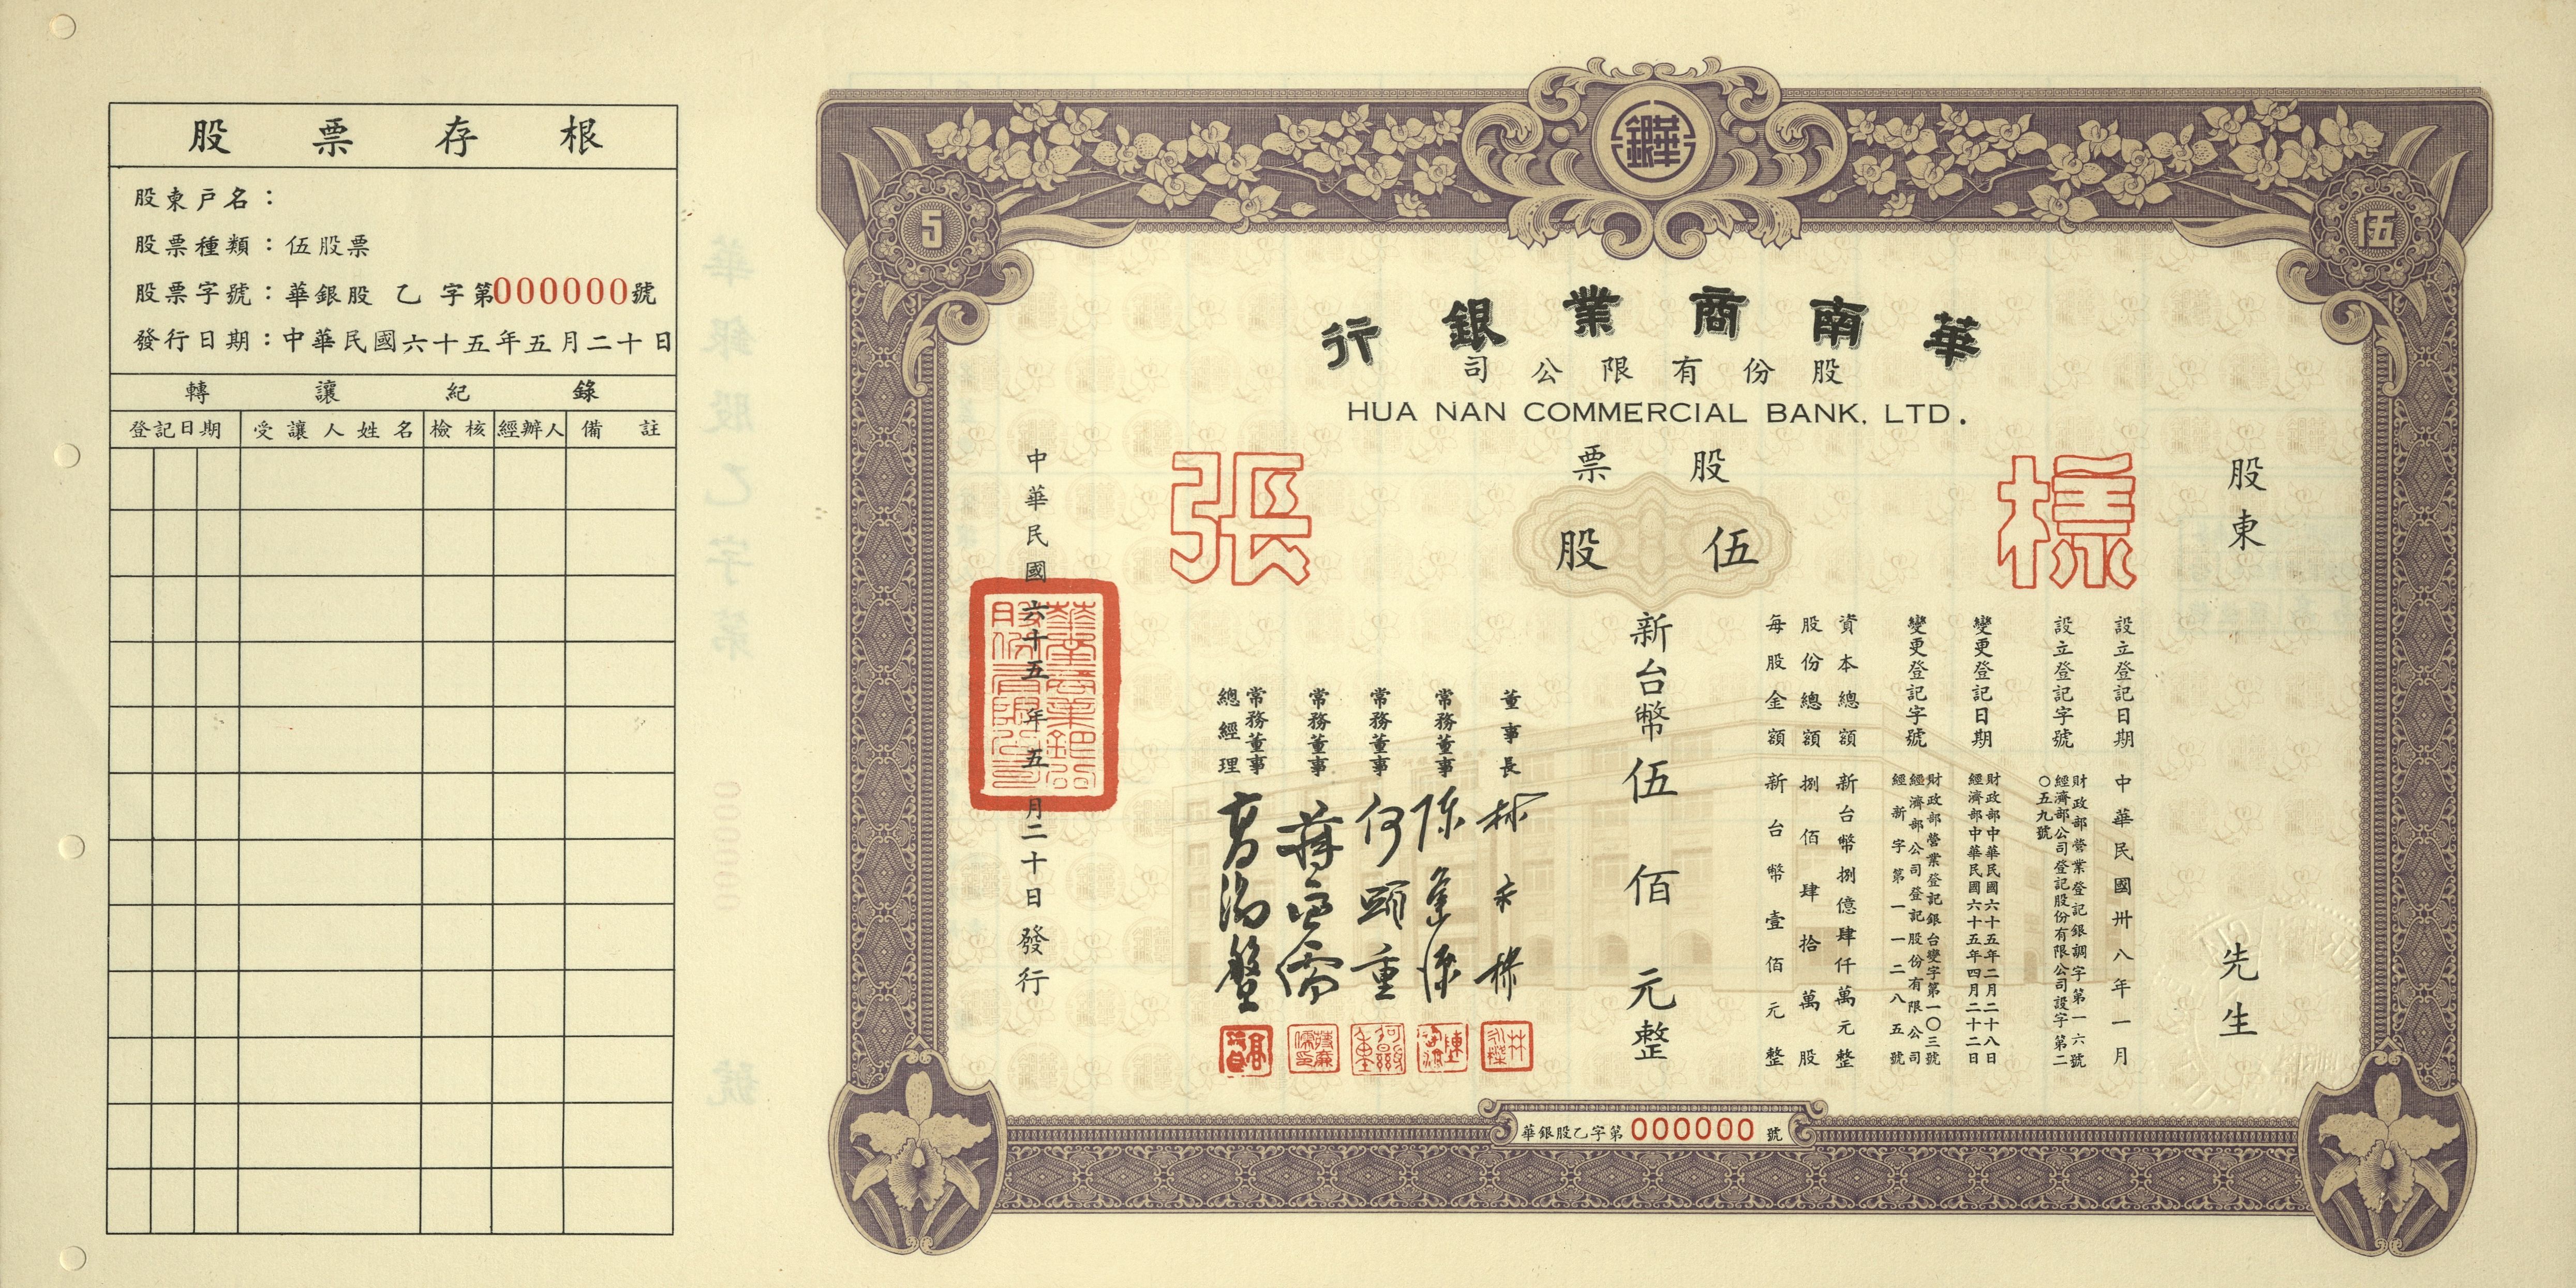 股票存根
股東戶名：
股票種類：伍股票
股票字號：華銀股 乙 字第000000號
發行日期：中華民國六十五年五月二十日
轉讓紀錄
登記日期 受讓人姓名 檢核 經辦人 備註
5
伍
華南商業銀行
股份有限公司
HUA NAN COMMERCIAL BANK, LTD.
股票
樣張
伍股
股東
先生
設立登記日期 中華民國卅八年一月
設立登記字號 財政部營業登記銀調字第一六號
經濟部公司登記股份有限公司設字第二〇五九號
變更登記日期 財政部中華民國六十五年二月二十八日
經濟部中華民國六十五年四月二十二日
變更登記字號 財政部營業登記銀台變字第一〇三號
經濟部公司登記股份有限公司
經新字第一一二八五號
資本總額 新台幣捌億肆仟萬元整
股份總額 捌佰肆拾萬股
每股金額 新台幣壹佰元整
新台幣伍佰元整
董事長
常務董事
常務董事 何顯重
常務董事
常務董事
總經理
中華民國六十五年五月二十日發行
華南商業銀行股份有限公司
華銀股乙字第000000號